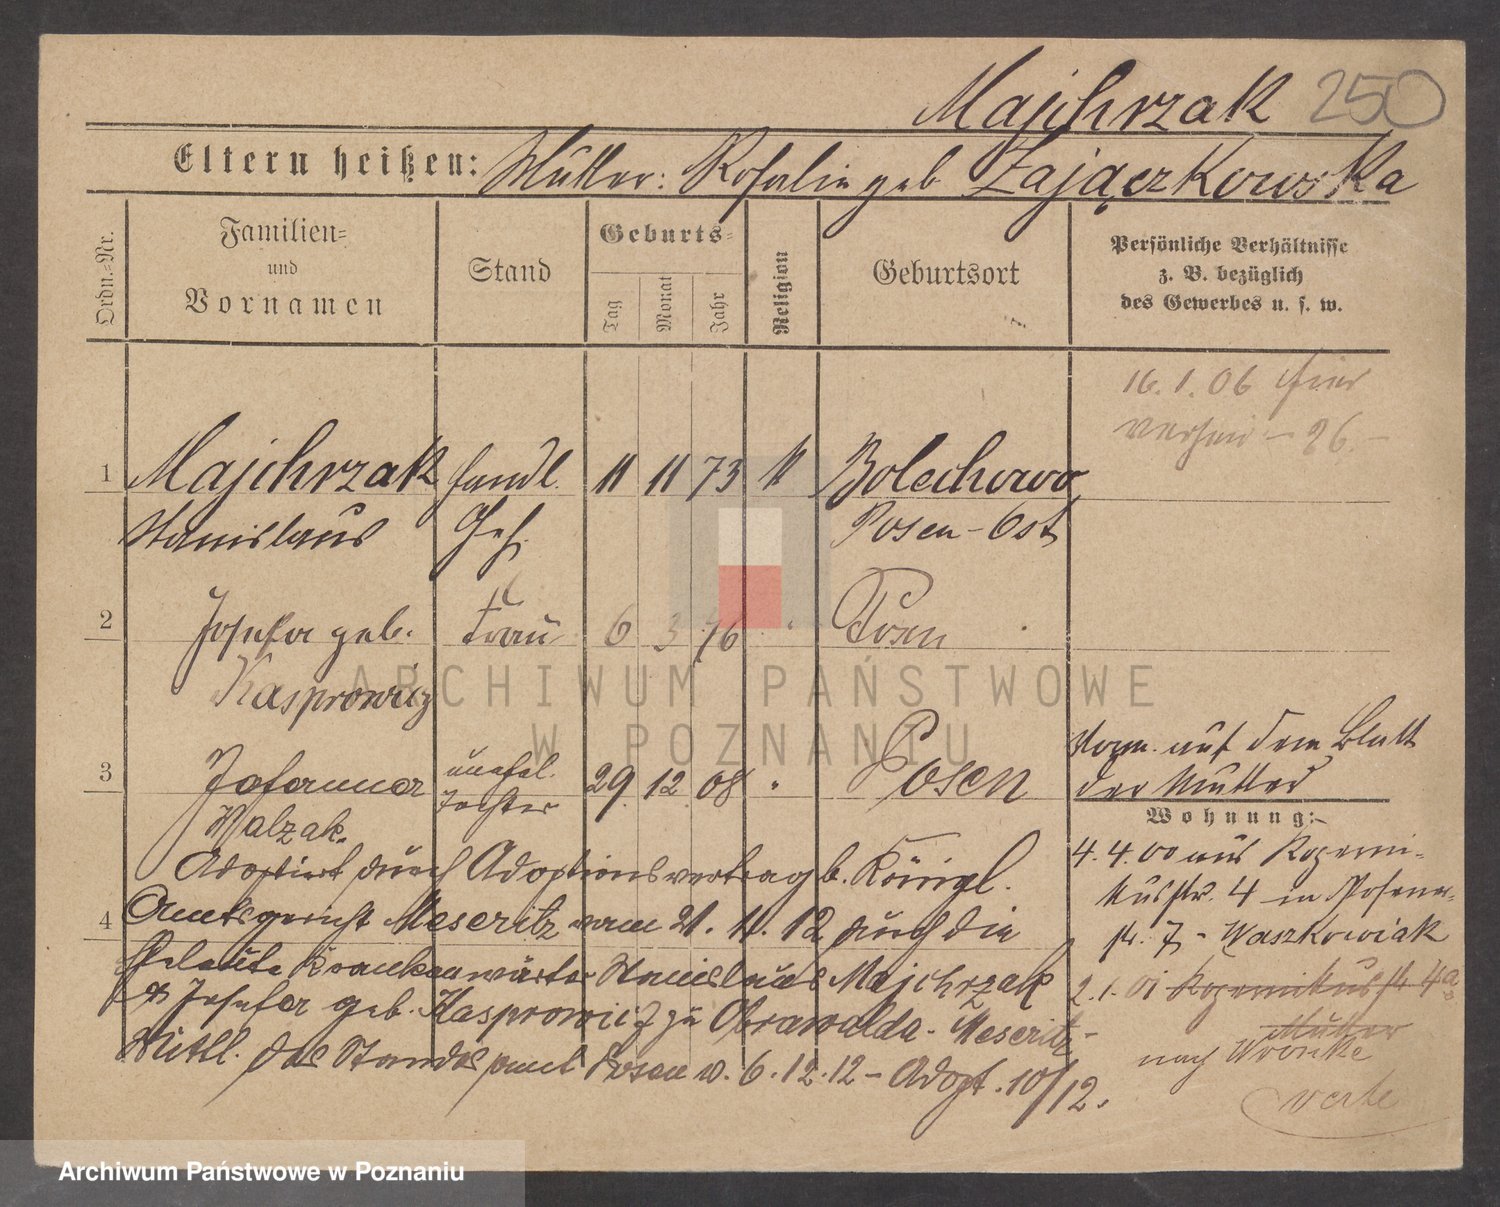 Majchrzak 250
Eltern heißen: Mutter: Rosalie geb Zajączkowska
Ordn.-Nr.
Familien-
und
Vornamen
Stand
Geburts-
Tag
Monat
Jahr
Religion
Geburtsort
Persönliche Verhältnisse
z. B. bezüglich
des Gewerbes u. s. w.
16. 1. 06 hier
1 Majchrzak Handl. 11 11 73 k Bolechowo
Stanislaus Geh. Posen-Ost
2 Josefa geb. Frau 6 3 76 " Posen
Kasprowicz
3 Johanna unehel. 29. 12 08 " Posen
Walzak. Tochter
Vorm. auf dem Blatt
der Mutter
Wohnung:
Adoptiert durch Adoptionsvertrag b. Königl.
4 Amtsgericht Meseritz vom 21. 11. 12 durch die
Eheleute Krankenwärter Stanislaus Majchrzak
& Josefa geb. Kasprowicz zu Obrawalde-Meseritz-
Mittl. des Standesamt Posen v. 6. 12. 12 - Adopt. 10/12.
4. 4. 00 aus
4 in
7 - Waszkowiak
2. 1. 01 4a
Mutter
nach Wronke
verte
ARCHIWUM PAŃSTWOWE
W POZNANIU
Archiwum Państwowe w Poznaniu